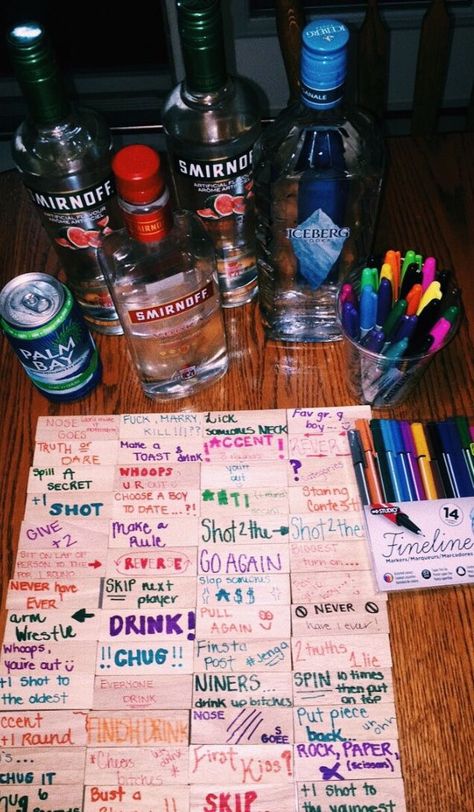 SMIRNOFF
ARTIFICIAL FLAVOUR
SMIRNOFF
ARTIFICIAL FLAVOUR
ICEBERG
ICEBERG
VODKA
SMIRNOFF
PALM
BAY
14
Fineline
Markers/Marqueurs/Marcadores
NOSE
GOES
FUCK, MARRY
KILL!!!??
Lick
SOMEONES NECK
Fav gr. 9
boy...
TRUTH OR
DARE
Make a
TOAST & drink
!ACCENT!
2EVER
Spill A
SECRET
WHOOPS
UR OUT
your
out
?
+1 SHOT
CHOOSE A BOY
TO DATE...?!
Staring
Contest
GIVE
+2
Make a
RULE
Shot 2 the →
Shot 2 the
SIT ON LAP OF
PERSON TO THE
FOR 1 ROUND
← REVERSE
GO AGAIN
BIGGEST
TURN ON...
NEVER have
EVER!
SKIP next
player
Slap someones
*A$$
⃠ NEVER ⃠
have I ever!
arm
Wrestle
DRINK!
PULL
AGAIN
Whoops,
you're out
!!CHUG!!
Finsta
Post *jenga*
2 truths
1 lie
+1 Shot to
the oldest
EVERYONE
DRINK
NINERS...
drink up bitches
SPIN 10 times
then put
on top
Accent
+1 Round
FINISH DRINK
NOSE
GOES
Put piece
back...
CHUG IT
*Cheers
bitches*
First Kiss?
ROCK, PAPER,
(scissors)
Chug 6
Bust a
SKIP
+1 Shot to
the youngest